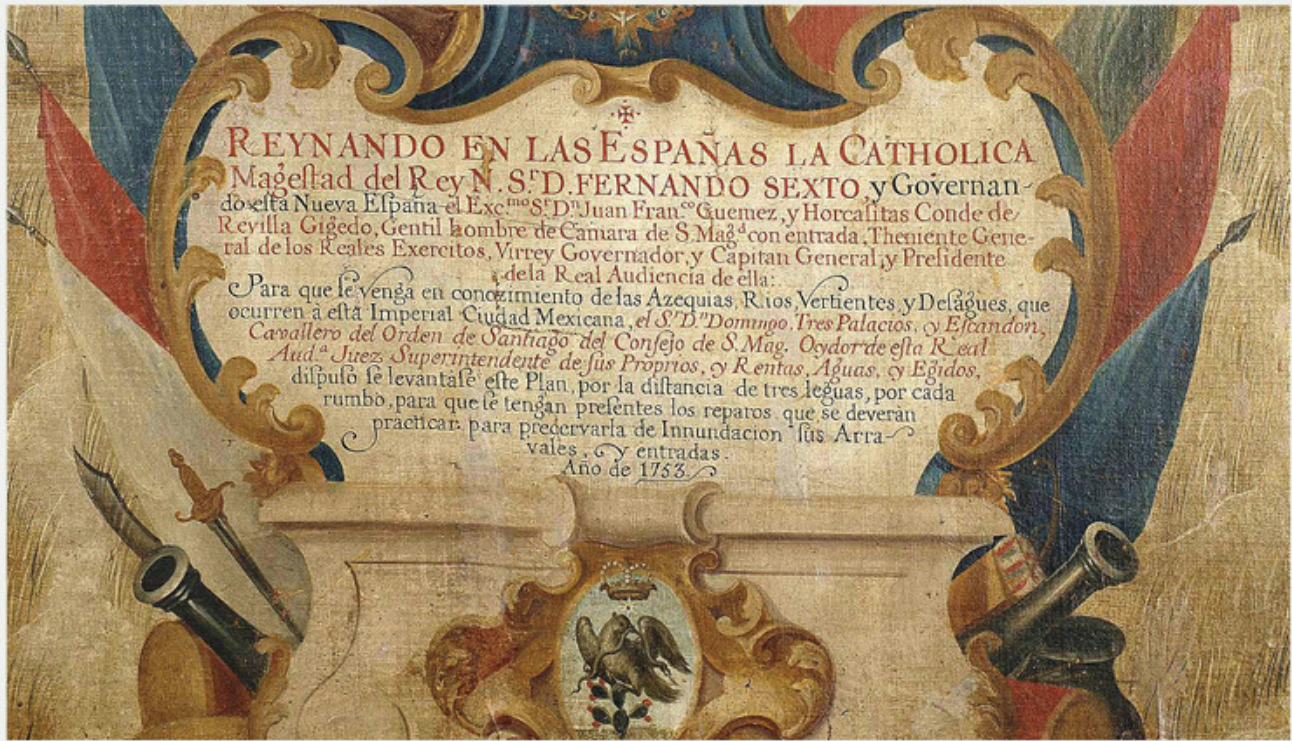 REYNANDO EN LAS ESPAÑAS LA CATHOLICA
Mageſtad del Rey N. S.r D. FERNANDO SEXTO, y Governan-
do eſta Nueva Eſpaña el Exc.mo S.r D.n Juan Fran.co Guemez, y Horcaſitas Conde de
Revilla Gigedo, Gentil hombre de Camara de S. Mag.d con entrada, Theniente Gene-
ral de los Reales Exercitos, Virrey Governador, y Capitan General, y Preſidente
de la Real Audiencia de ella:
Para que ſe venga en conozimiento de las Azequias, Rios, Vertientes, y Deſagues, que
ocurren à eſta Imperial Ciudad Mexicana, el S.r D.n Domingo, Tres Palacios, y Eſcandon,
Cavallero del Orden de Santiago del Conſejo de S. Mag. Oydor de eſta Real
Aud.a Juez Superintendente de ſus Proprios, y Rentas, Aguas, y Egidos,
diſpuſo ſe levantaſe eſte Plan, por la diſtancia de tres leguas, por cada
rumbo, para que ſe tengan preſentes los reparos que se deveràn
practicar para precervarla de Innundacion ſus Arra-
vales, y entradas.
Año de 1753.